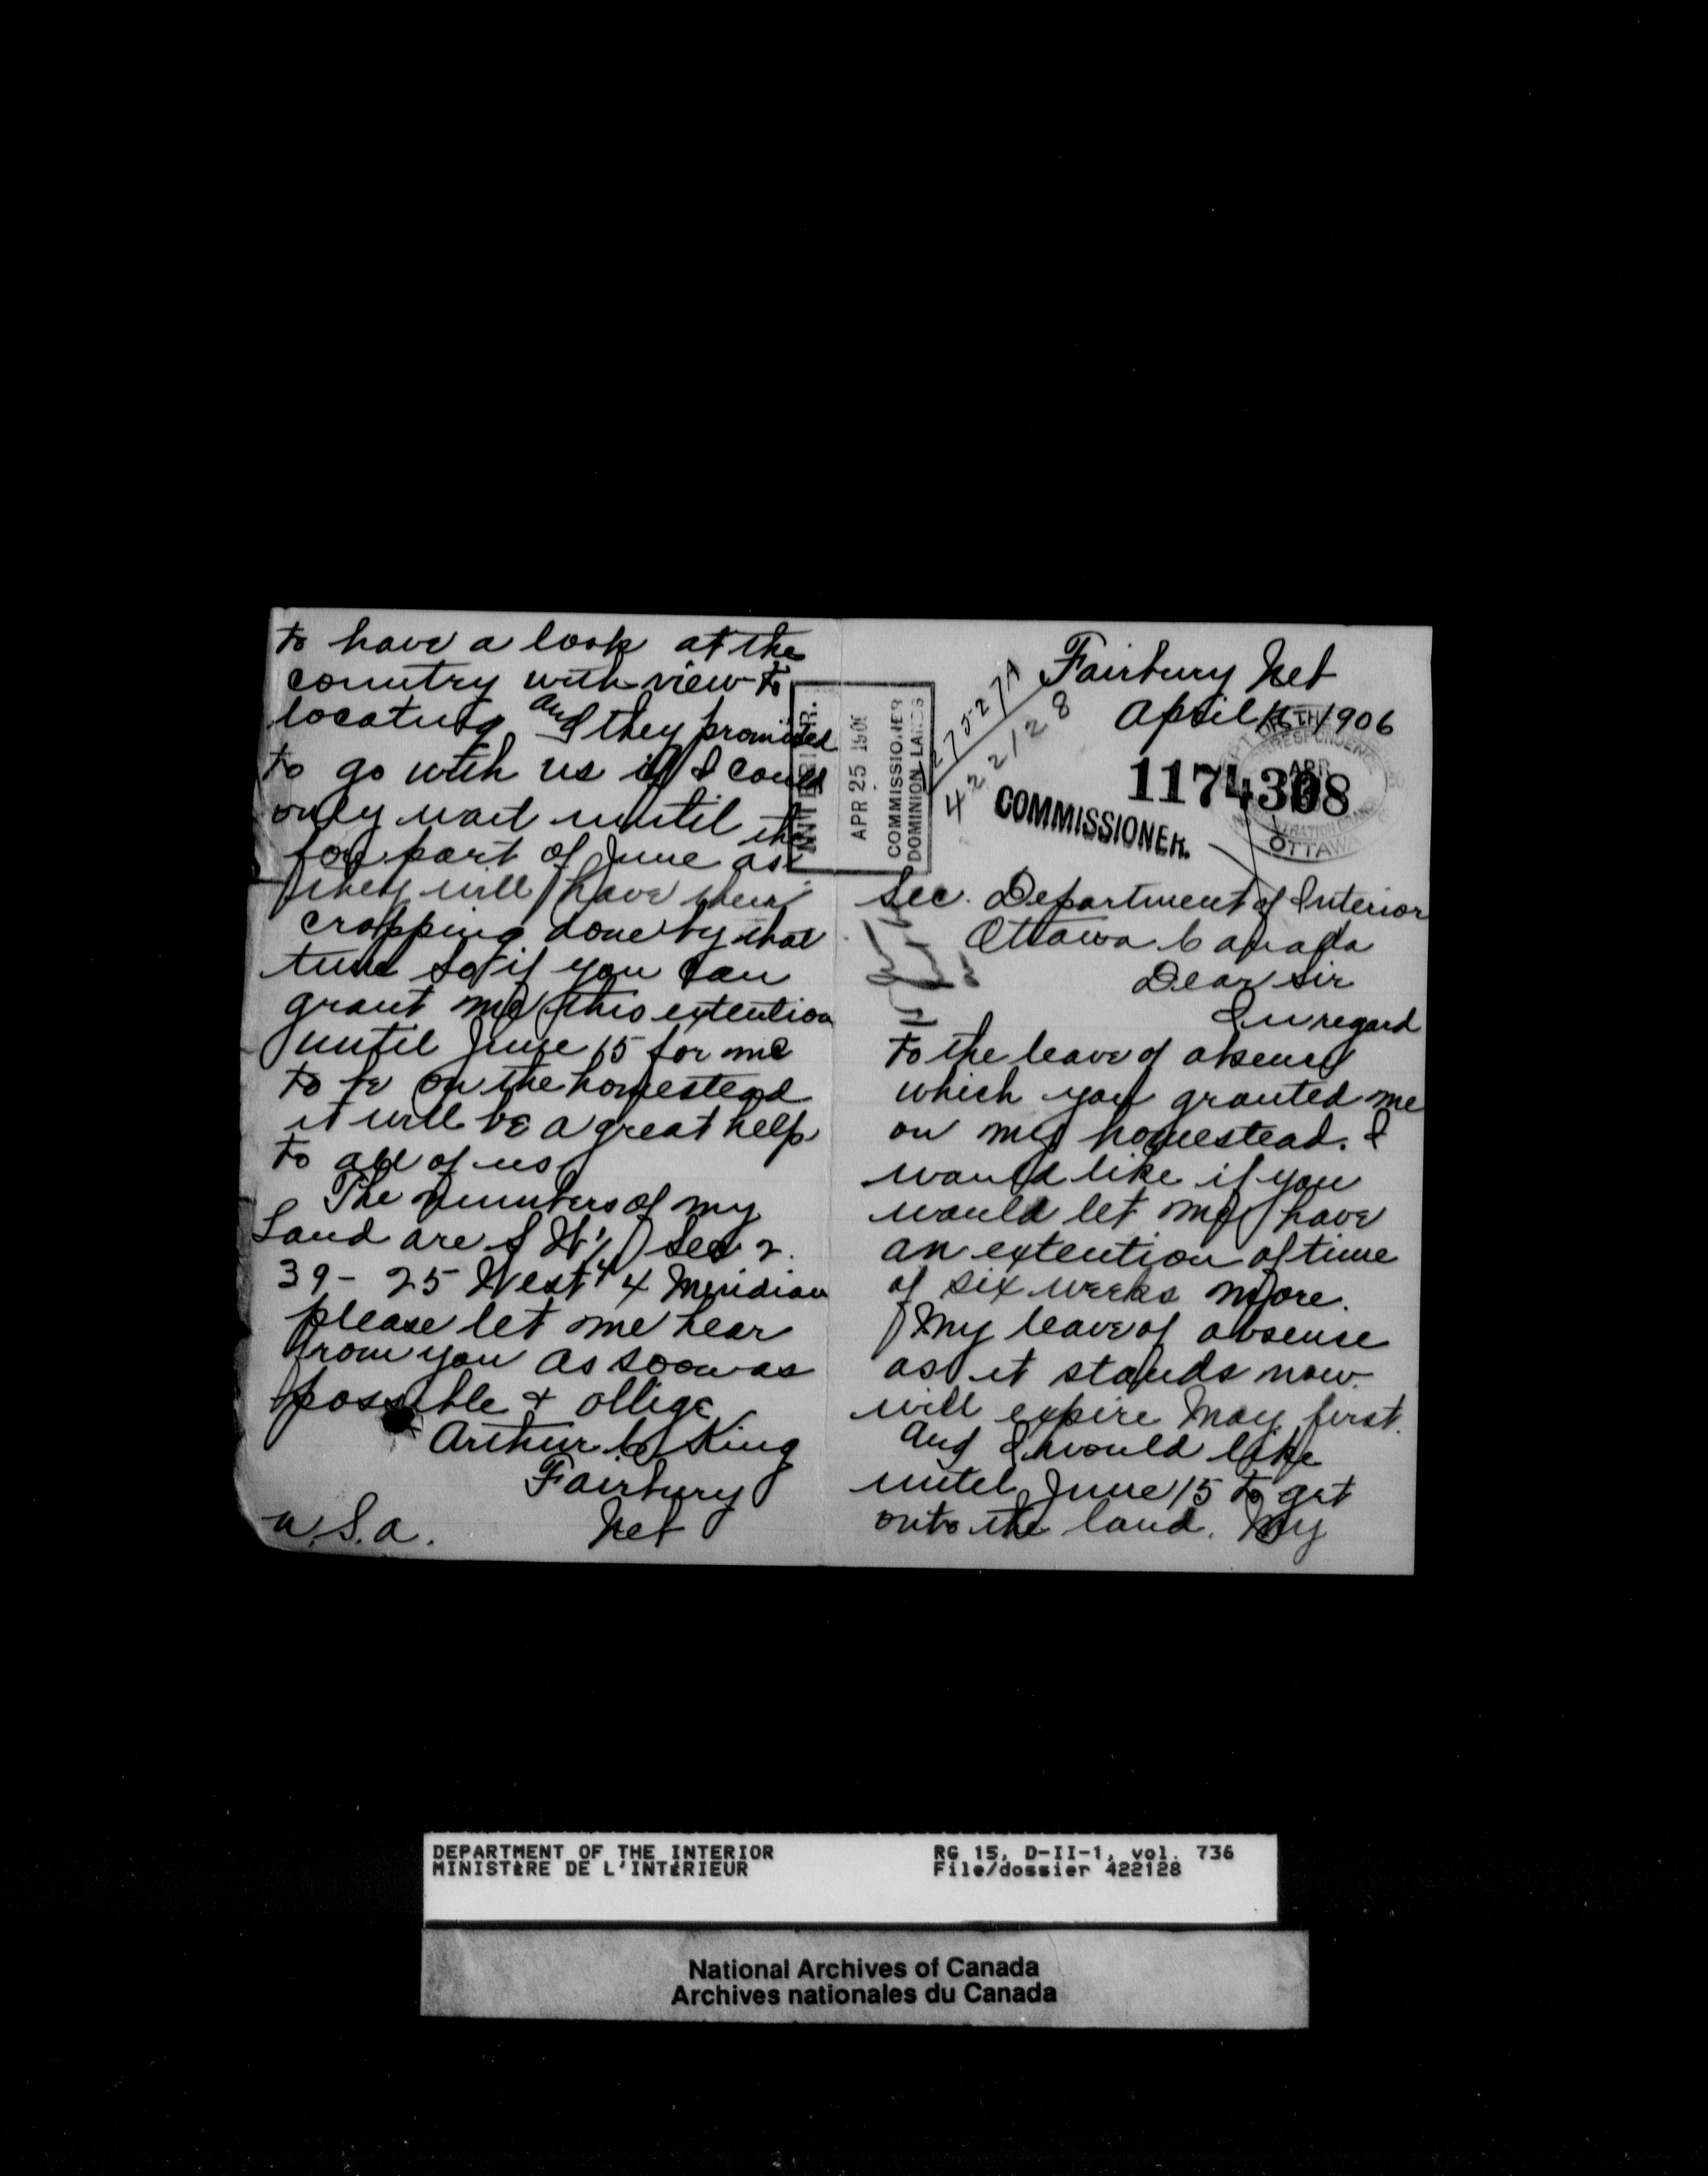 Fairbury Neb
April 16 1906
275271
422128
1174308
COMMISSIONER.
APR
OTTAWA
INTERIOR.
APR 25 1906
COMMISSIONER
DOMINION LANDS
Sec. Department of Interior
Ottawa Canada
Dear Sir
In regard
to the leave of absence
which you granted me
on my homestead. I
would like if you
would let me have
an extention of time
of six weeks more.
My leave of absense
as it stands now
will expire May first.
and I would like
until June 15 to get
onto the land. My
to have a look at the
country with view to
locating and they promised
to go with us if I could
only wait until the
fore part of June as
they will have their
cropping done by that
time so if you can
grant me this extention
until June 15 for me
to be on the homestead
it will be a great help
to all of us
The numbers of my
Land are S W 1/4 Sec 2.
39 - 25 West 4 Meridian
please let me hear
from you as soon as
possible & oblige
Arthur C King
Fairbury
Neb
U.S.A.
DEPARTMENT OF THE INTERIOR
MINISTÈRE DE L'INTÉRIEUR
RG 15, D-II-1, vol. 736
File/dossier 422128
National Archives of Canada
Archives nationales du Canada